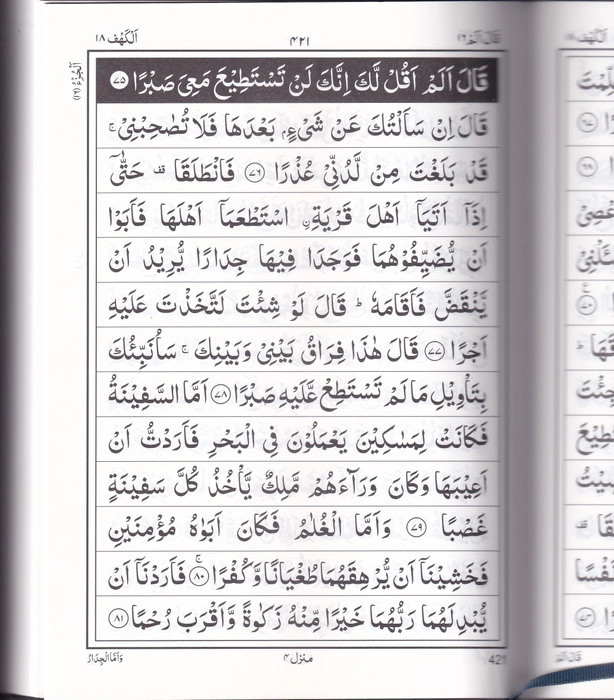 اَلْكَهْف ١٨
٤٢١
قَالَ اَلَمْ ١٦
اَلْجُزْءُ (١٦)
قَالَ اَلَمْ اَقُلْ لَّكَ اِنَّكَ لَنْ تَسْتَطِيْعَ مَعِىَ صَبْرًا ﴿٧٥﴾
قَالَ اِنْ سَاَلْتُكَ عَنْ شَىْءٍۭ بَعْدَهَا فَلَا تُصٰحِبْنِىْ ۚ
قَدْ بَلَغْتَ مِنْ لَّدُنِّىْ عُذْرًا ﴿٧٦﴾ فَانْطَلَقَا ۥقف حَتّٰٓى
اِذَاۤ اَتَيَاۤ اَهْلَ قَرْيَةِ ۨاسْتَطْعَمَاۤ اَهْلَهَا فَاَبَوْا
اَنْ يُّضَيِّفُوْهُمَا فَوَجَدَا فِيْهَا جِدَارًا يُّرِيْدُ اَنْ
يَّنْقَضَّ فَاَقَامَهٗ ؕ قَالَ لَوْ شِئْتَ لَتَّخَذْتَ عَلَيْهِ
اَجْرًا ﴿٧٧﴾ قَالَ هٰذَا فِرَاقُ بَيْنِىْ وَبَيْنِكَ ۚ سَاُنَبِّئُكَ
بِتَاْوِيْلِ مَا لَمْ تَسْتَطِعْ عَّلَيْهِ صَبْرًا ﴿٧٨﴾ اَمَّا السَّفِيْنَةُ
فَكَانَتْ لِمَسٰكِيْنَ يَعْمَلُوْنَ فِى الْبَحْرِ فَاَرَدْتُّ اَنْ
اَعِيْبَهَا وَكَانَ وَرَآءَهُمْ مَّلِكٌ يَّاْخُذُ كُلَّ سَفِيْنَةٍ
غَصْبًا ﴿٧٩﴾ وَاَمَّا الْغُلٰمُ فَكَانَ اَبَوٰهُ مُؤْمِنَيْنِ
فَخَشِيْنَاۤ اَنْ يُّرْهِقَهُمَا طُغْيَانًا وَّكُفْرًا ۚ﴿٨٠﴾ فَاَرَدْنَاۤ اَنْ
يُّبْدِلَهُمَا رَبُّهُمَا خَيْرًا مِّنْهُ زَكٰوةً وَّاَقْرَبَ رُحْمًا ﴿٨١﴾
وَاَمَّا الْجِدَارُ
منزل ٤
421